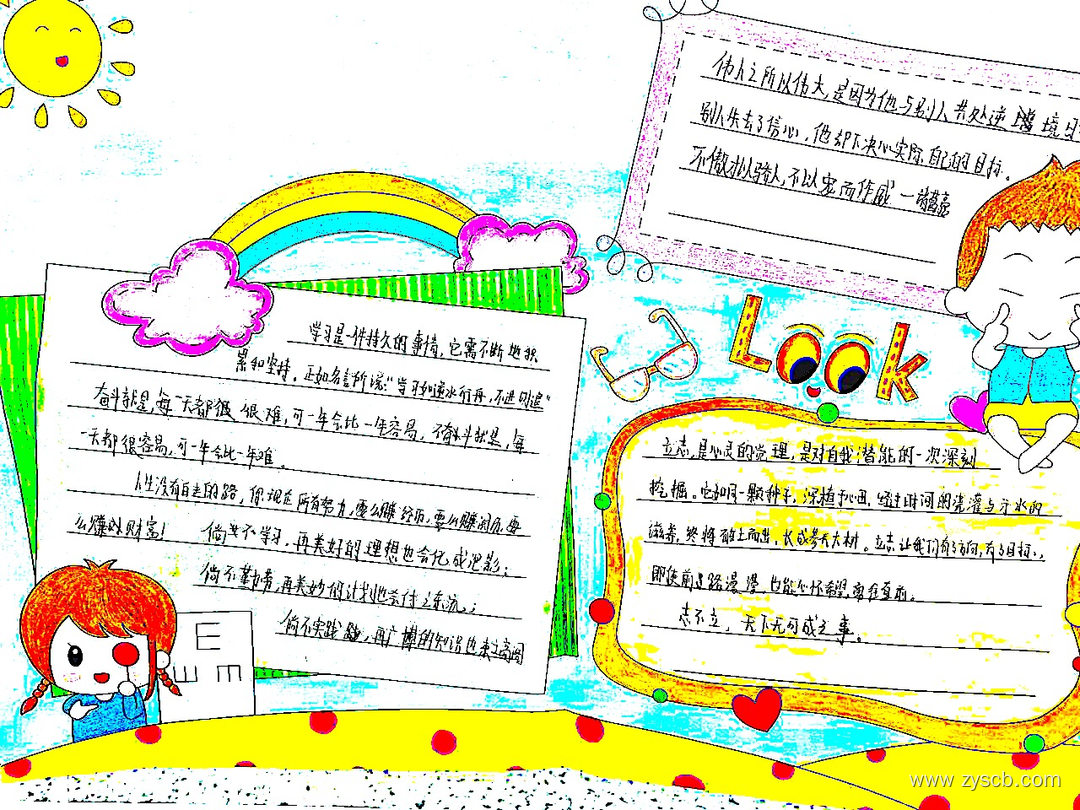 伟人之所以伟大,是因为他与别人共处逆境时
别人失去了信心,他却下决心实际自己的目标。
不傲才以骄人,不以宠而作威
Look
学习是一件持久的事情,它需不断地积
累和坚持。正如名言所说:"学习如逆水行舟,不进则退"
奋斗就是,每一天都很 很难,可一年会比一年容易,不奋斗就是,每
一天都很容易,可一年会比一年难。
人生没有白走的路,你现在所有努力,要么赚 要么赚 要
么赚以财富!倘若不学习,再美好的理想也会化成泡影;
倘不勤劳,再美妙的计划也会付之东流;
倘不实践 ,再广博的知识也束之高阁
立志,是心灵的觉理,是对自我潜能的一次深刻
挖掘。它如同一颗种子,深植于心田,经过时间的浇灌与汗水的
滋养,终将破土而出,长成参天大树。立志让我们有了方向,有了目标,
即使前边路漫漫 也能心怀希望,勇往直前。
志不立,天下无可成之事。
E
W m
www.zyscb.com